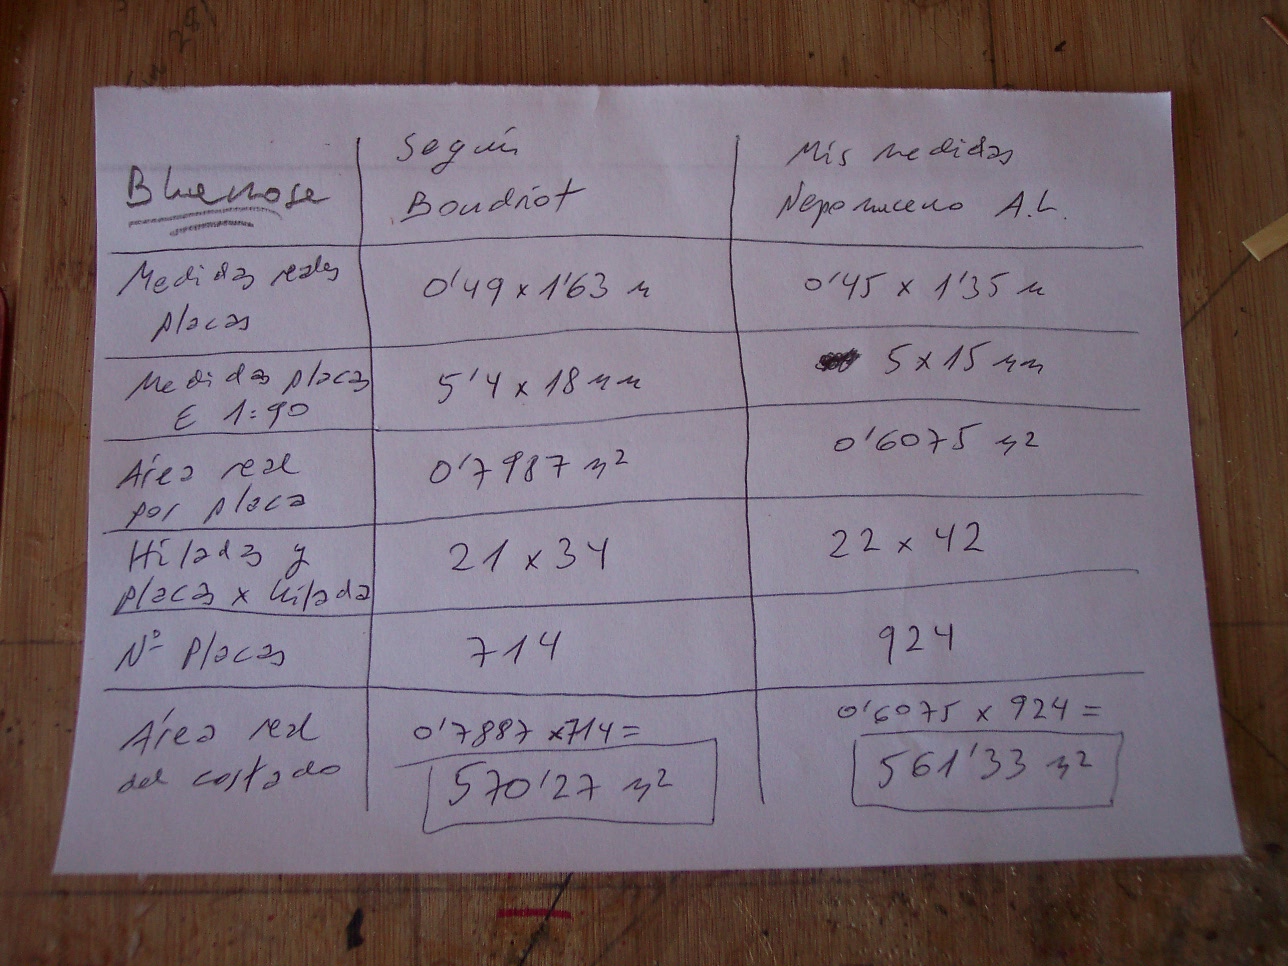 Bluenose
Según
Boudriot
Mis medidas
Nepomuceno A.L.
Medidas reales
placas
0'49 x 1'63 m
0'45 x 1'35 m
Medidas placas
E 1:90
5'4 x 18 mm
5 x 15 mm
Área real
por placa
0'7987 m²
0'6075 m²
Hiladas y
placas x hilada
21 x 34
22 x 42
Nº Placas
714
924
Área real
del costado
0'7887 x714=
570'27 m²
0'6075 x 924=
561'33 m²